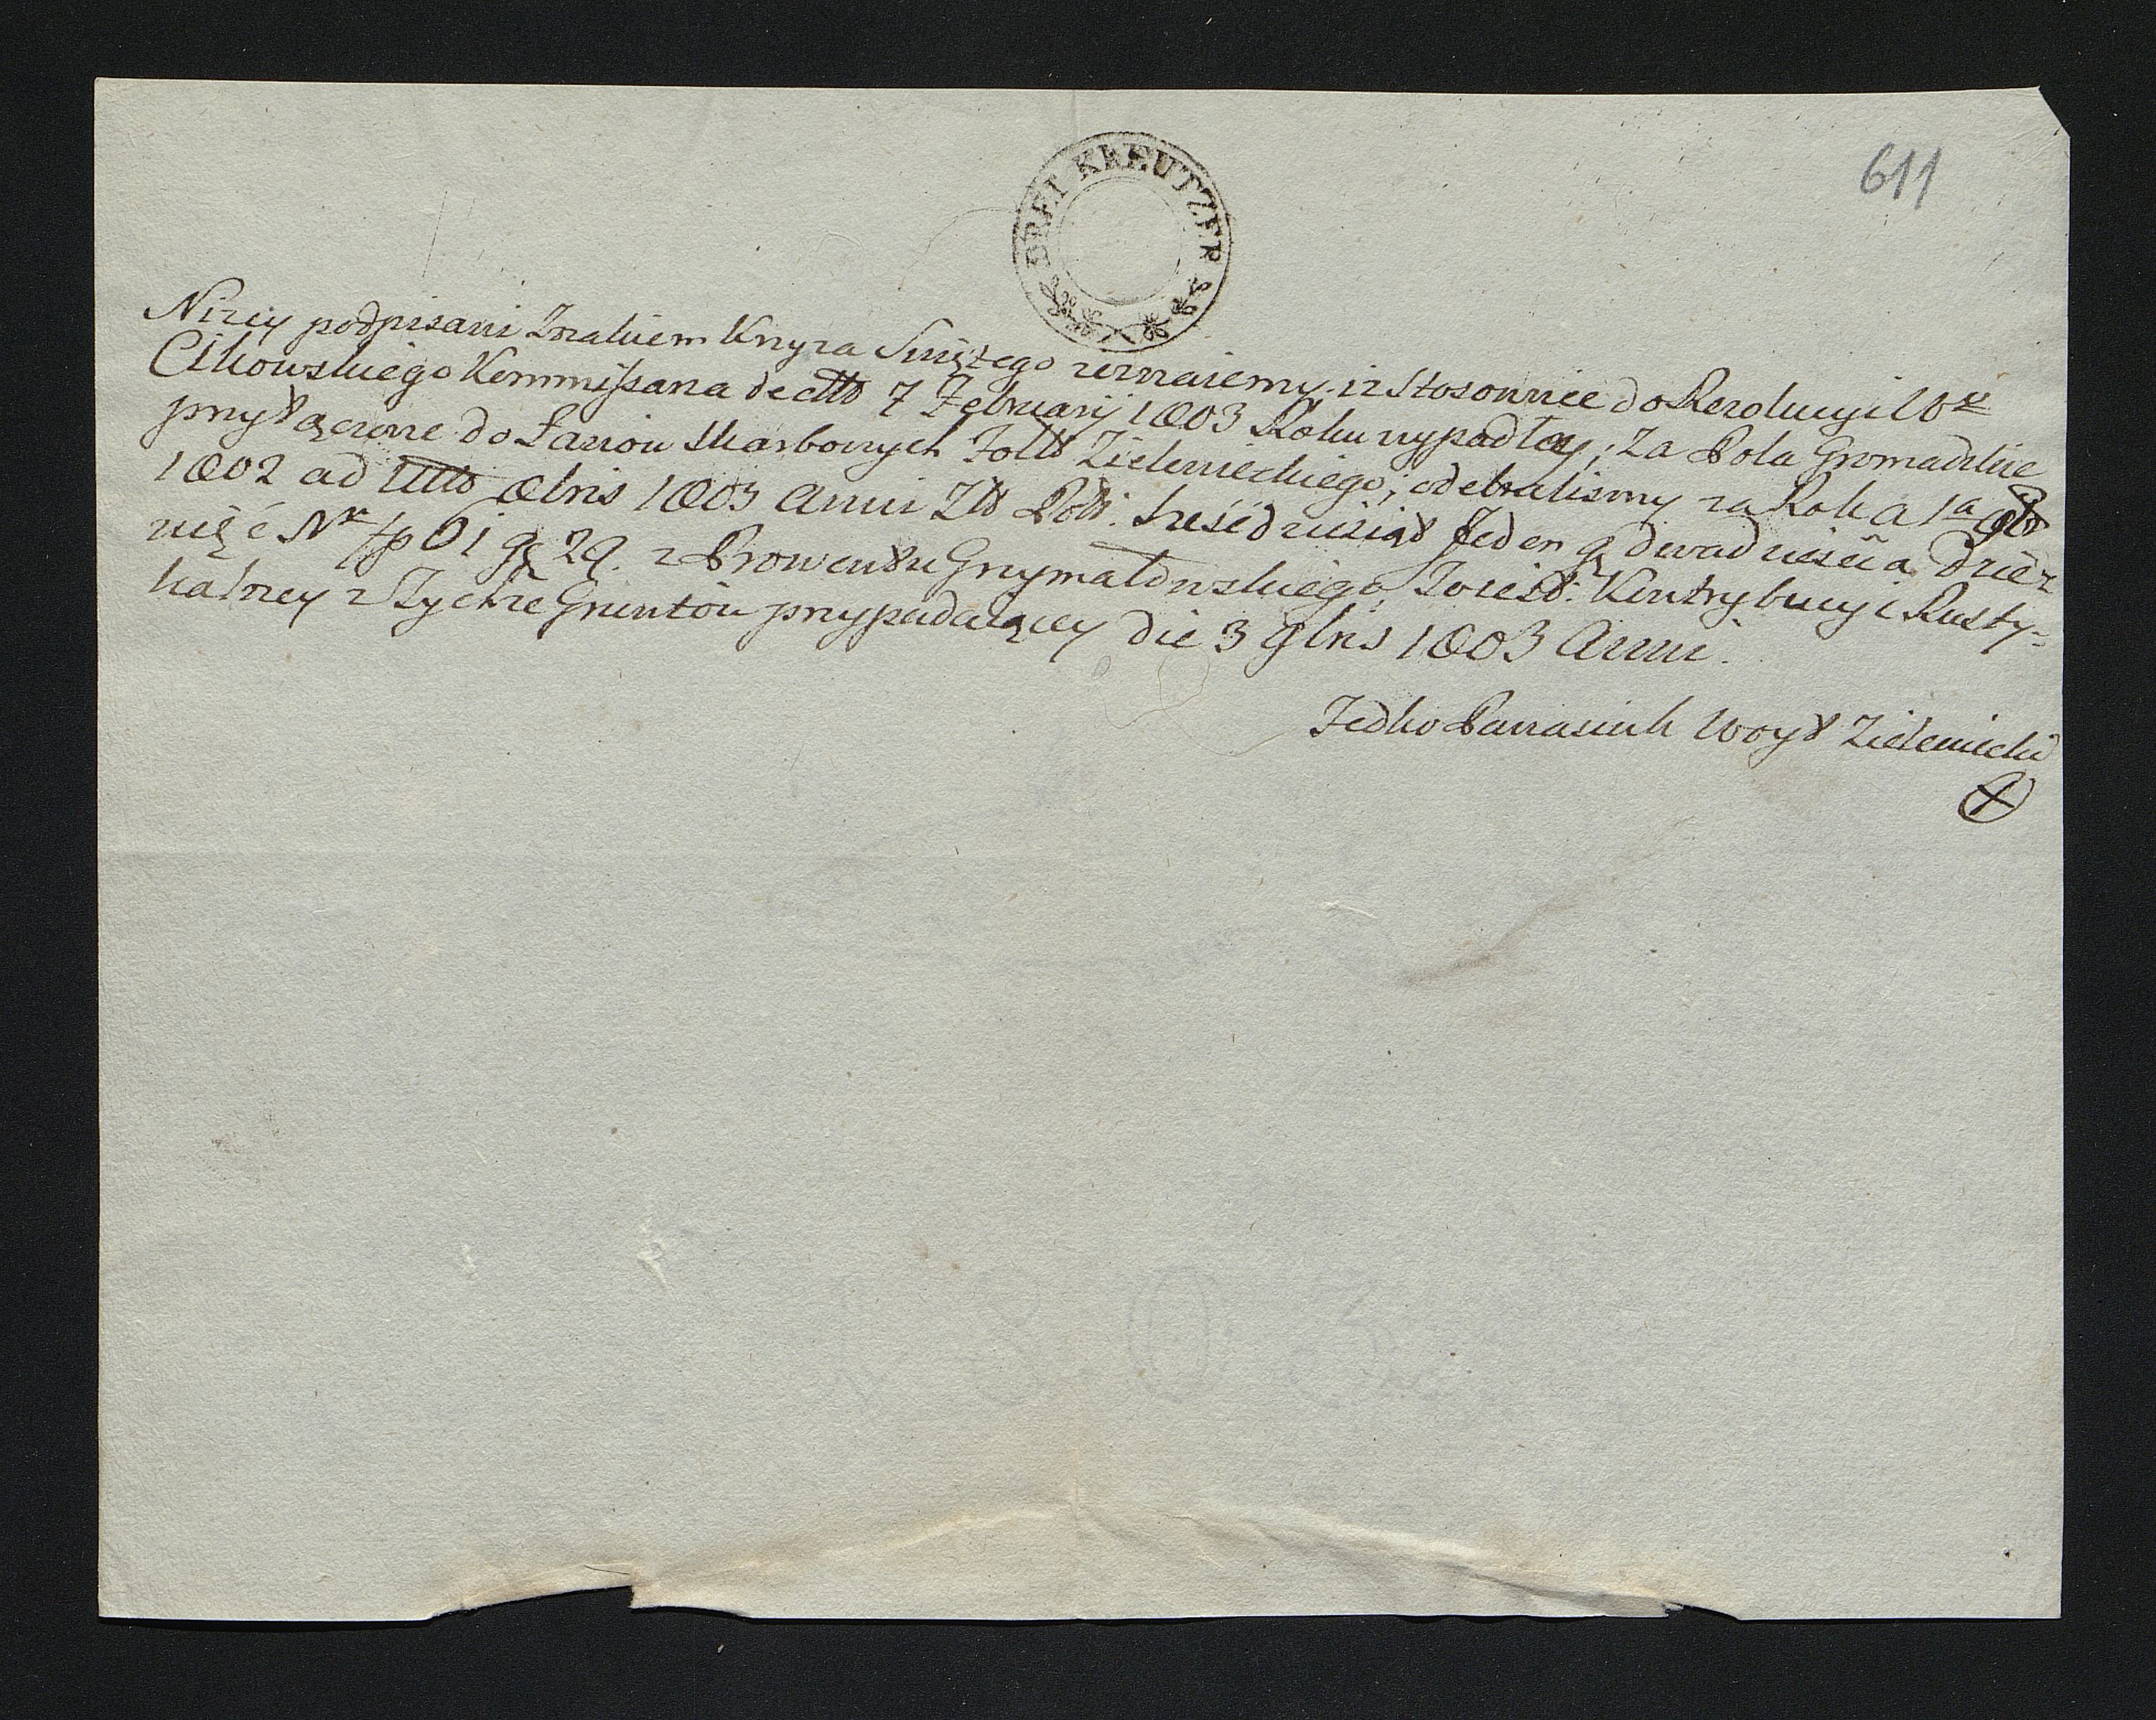 611
DREI KREUTZER
Niżey podpisani Znakiem Krzyża Swiętego zeznaiemy, iż Stosownie do Rezolucyi W°
Cikowskiego Kommissarza de dtto 7 Februarij 1803 Roku wypadłey, Za Pola Gromadzkie
przyłączone do Łanow Skarbowych Folw Zielenieckiego, odebralismy za Rok a 1a 9b
1802 ad Ult 8bris 1803 Anni Zło Pols. szescdziesiąt Jeden g dwadziescia Dzie=
więć N° fp 61 gr 29. z Prowentu Grzymałowskiego, To iest: Kontrybucyi Rusty=
kalney z Tychże Gruntow przypadaiącey die 3 9bris 1803 Anni.
Fedko Panasiuk Woyt Zielenicki